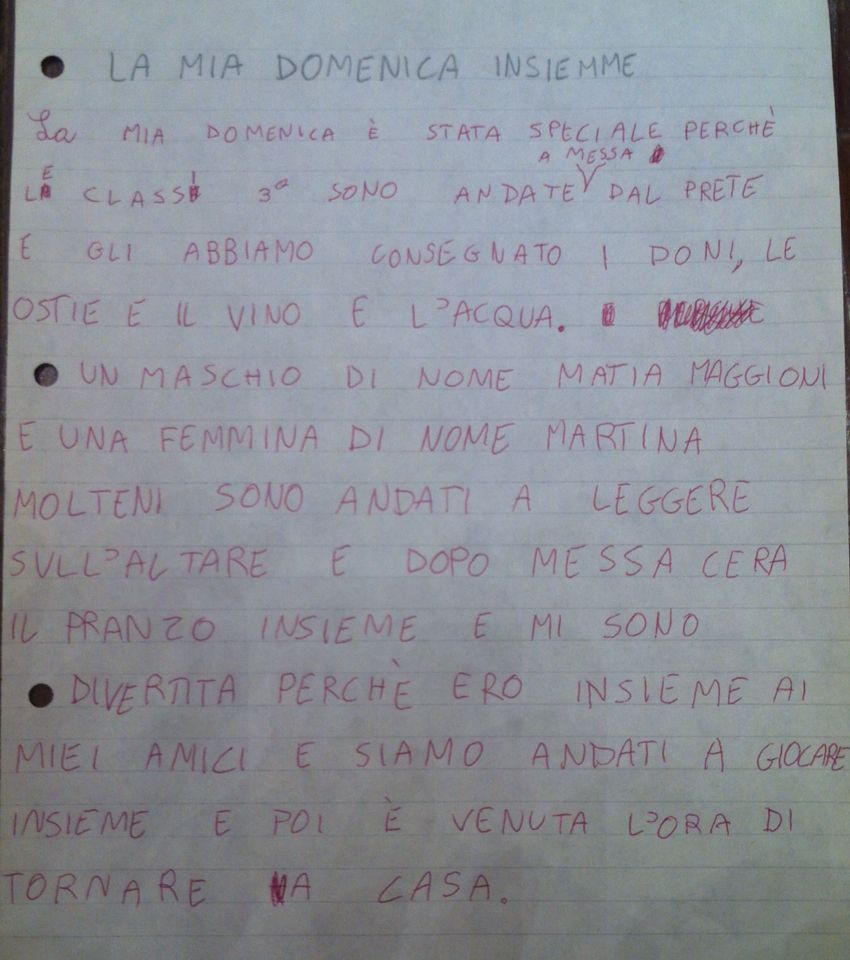 LA MIA DOMENICA INSIEMME
La MIA DOMENICA È STATA SPECIALE PERCHÈ
A MESSA
LE CLASSI 3a SONO ANDATE DAL PRETE
E GLI ABBIAMO CONSEGNATO I DONI, LE
OSTIE E IL VINO E L'ACQUA.
UN MASCHIO DI NOME MATIA MAGGIONI
E UNA FEMMINA DI NOME MARTINA
MOLTENI SONO ANDATI A LEGGERE
SULL'ALTARE E DOPO MESSA CERA
IL PRANZO INSIEME E MI SONO
DIVERTITA PERCHÈ ERO INSIEME AI
MIEI AMICI E SIAMO ANDATI A GIOCARE
INSIEME E POI È VENUTA L'ORA DI
TORNARE A CASA.